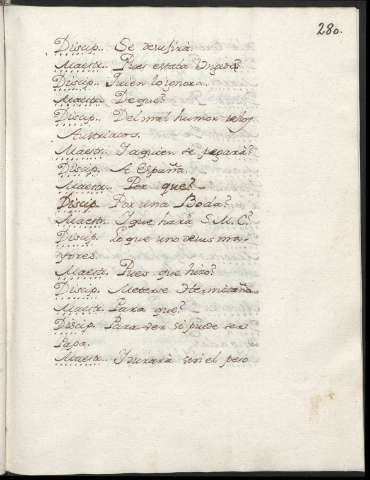 280.
Discip. Se desusirá.
Maestr. Pues estaba Ungado?
Discip. Quien lo ignora.
Maestr. De que?
Discip. Del mal humor de los
Austriacos.
Maestr. I aquien se pegará?
Discip. A España.
Maestr. Por que?
Discip. Por una Boda?
Maestr. I que hará S. M. C.?
Discip. Lo que uno de sus ma-
yores.
Maestr. Pues que hizo?
Discip. Meterse Hermitaño.
Maestr. Para que?
Discip. Para ver si pude ser
Papa.
Maestr. I sin el peso